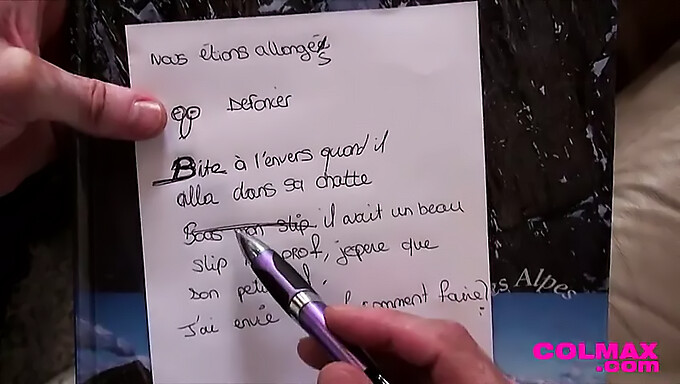 Nous étions allongés
DEFONCER
Bite à l'envers quand il
alla dans sa chatte
Sous mon slip il avait un beau
slip prof, j'epere que
son petit
J'ai envie comment faire?
es Alpes
COLMAX
.com